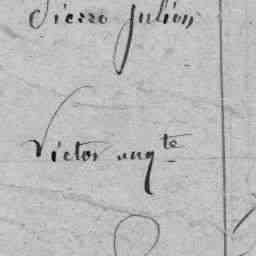 Pierre Julien
Victor aug^te